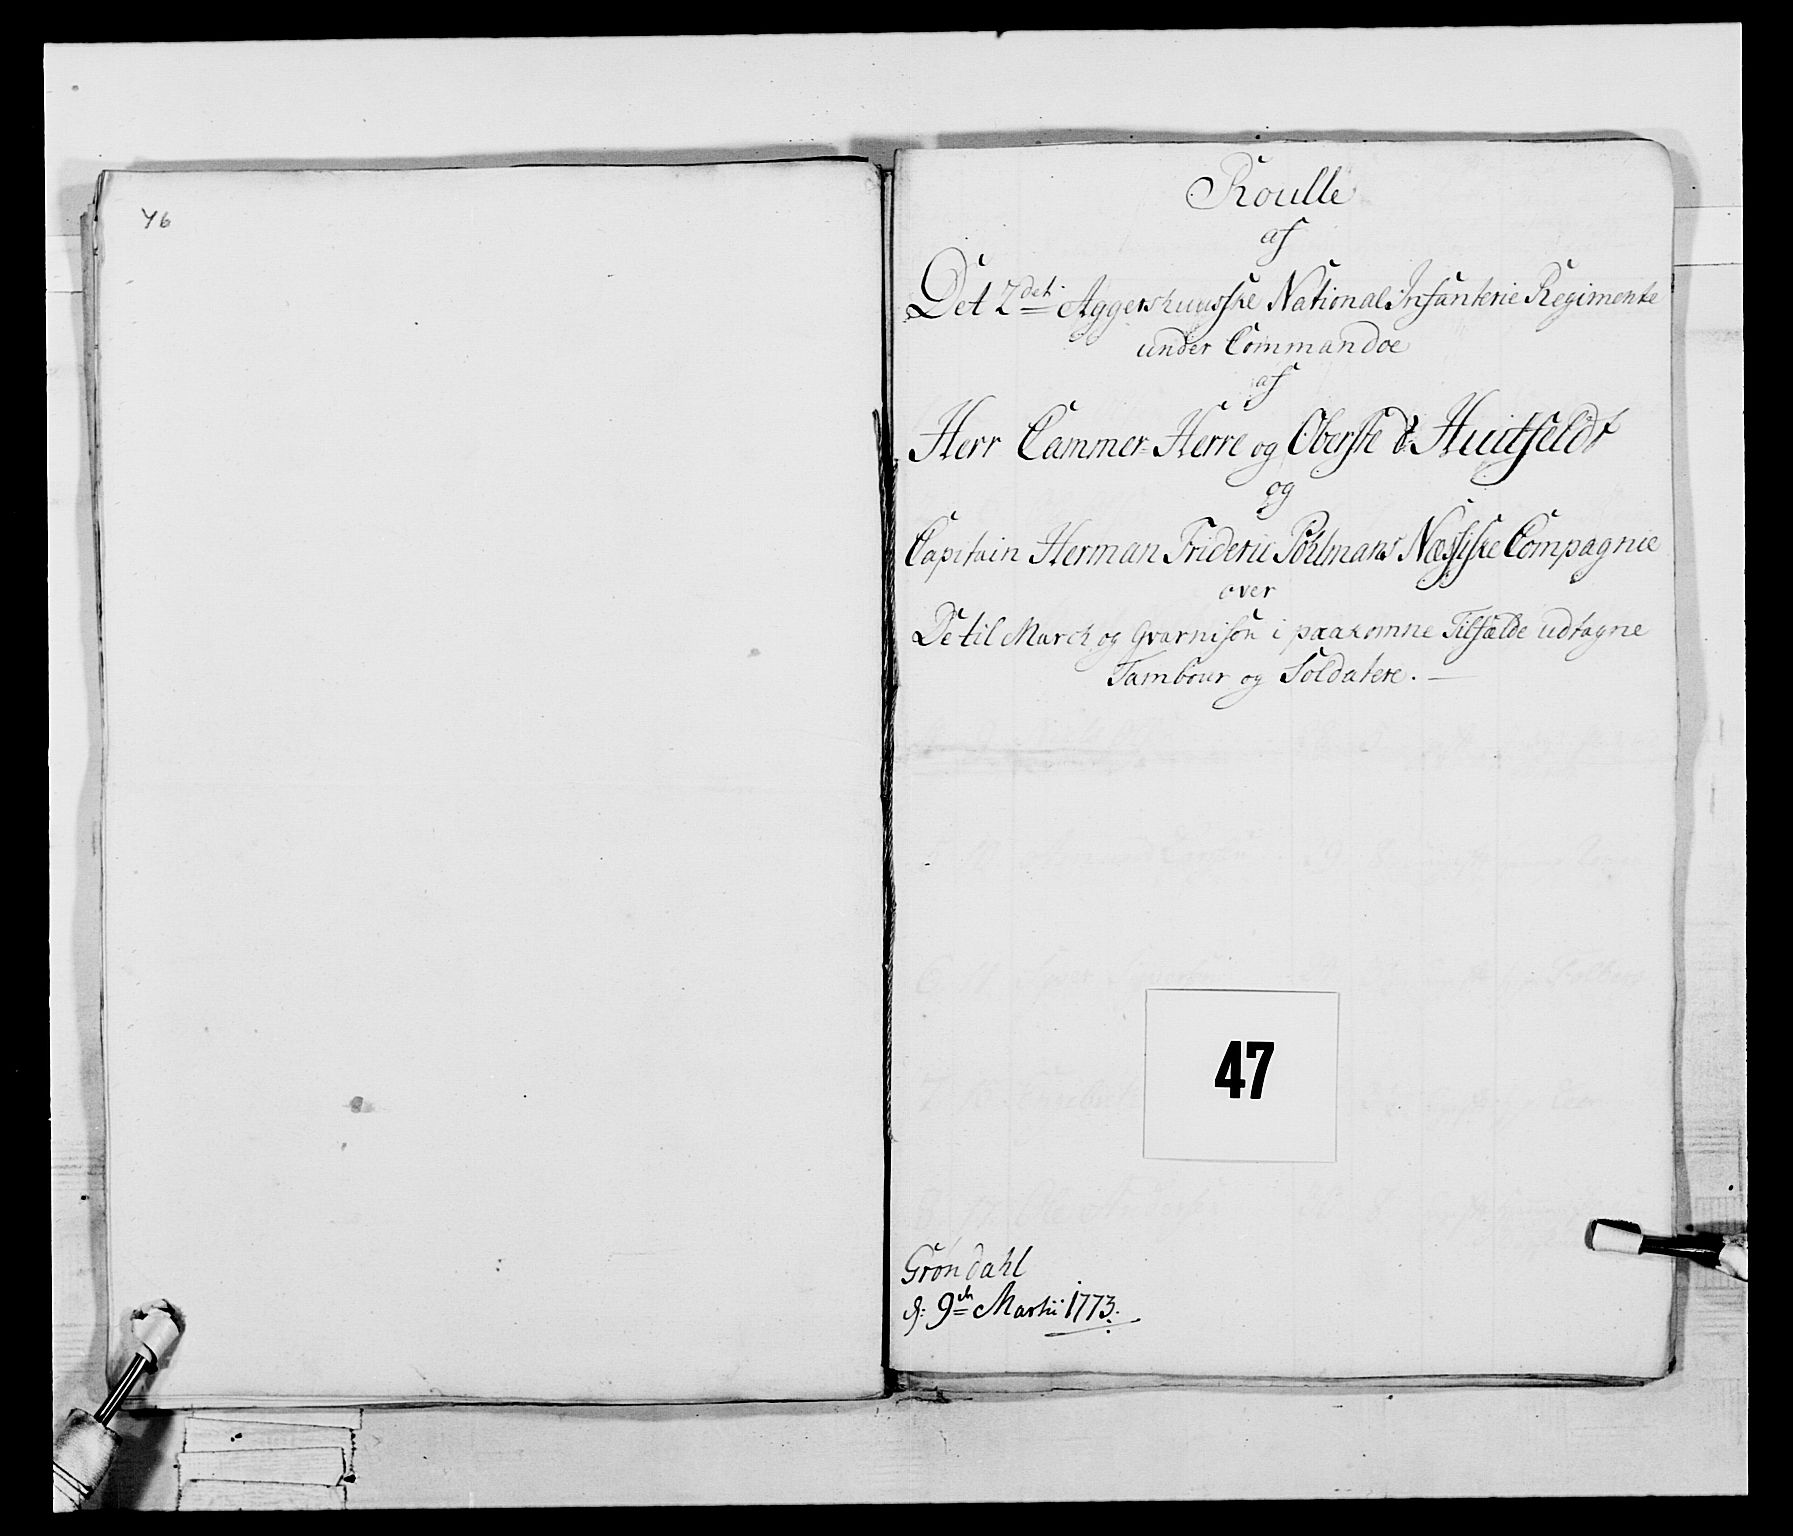 46
Roulle
af
Det 2det Aggershuusiske National Infanterie Regimente
under Commandoe
af
Herr Cammer-Herre og Oberste d. Huitfeldt
og
Capitain Herman Frideric Pohlmans Næssiske Compagnie
over
De til March og Gvarnison i paakomne Tilfælde udtagne
Tambour og Soldatere. —
47
Grøndahl
d: 9de Martii 1773.